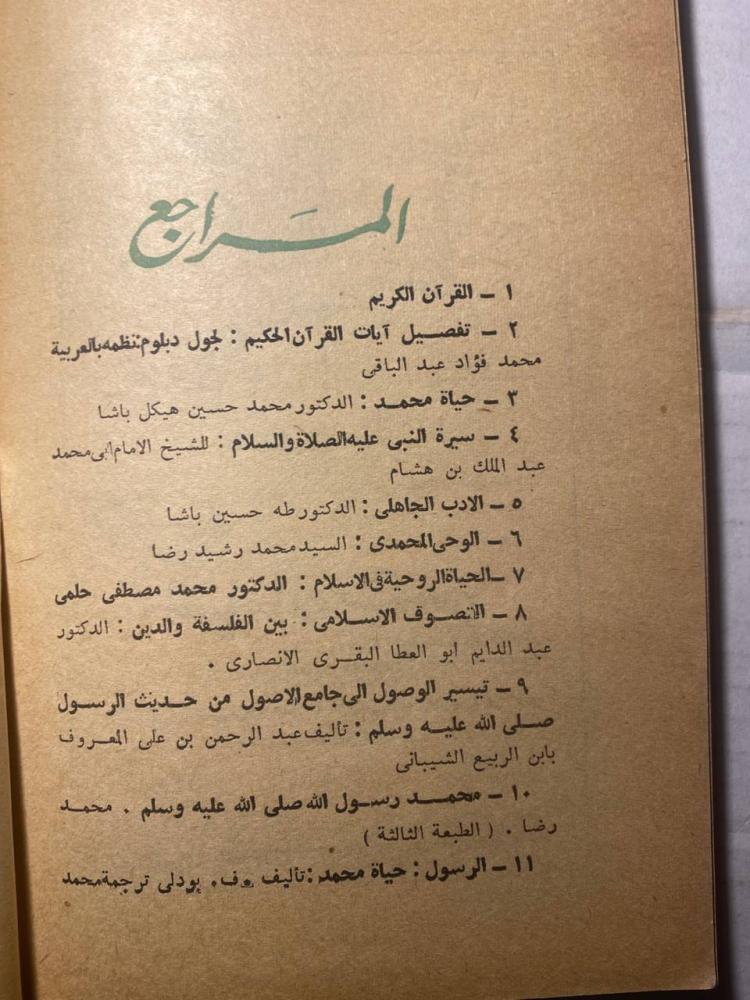 المراجع
١ – القرآن الكريم
٢ – تفصيل آيات القرآن الحكيم : لجول دبلوم نظمه بالعربية
محمد فؤاد عبد الباقى
٣ – حياة محمد : الدكتور محمد حسين هيكل باشا
٤ – سيرة النبى عليه الصلاة والسلام : للشيخ الامام ابى محمد
عبد الملك بن هشام
٥ – الادب الجاهلى : الدكتور طه حسين باشا
٦ – الوحى المحمدى : السيد محمد رشيد رضا
٧ – الحياة الروحية فى الاسلام : الدكتور محمد مصطفى حلمى
٨ – التصوف الاسلامى : بين الفلسفة والدين : الدكتور
عبد الدايم ابو العطا البقرى الانصارى .
٩ – تيسير الوصول الى جامع الاصول من حديث الرسول
صلى الله عليه وسلم : تأليف عبد الرحمن بن على المعروف
بابن الربيع الشيبانى
١٠ – محمد رسول الله صلى الله عليه وسلم . محمد
رضا . ( الطبعة الثالثة )
١١ – الرسول : حياة محمد : تأليف ف. بودلى ترجمة محمد